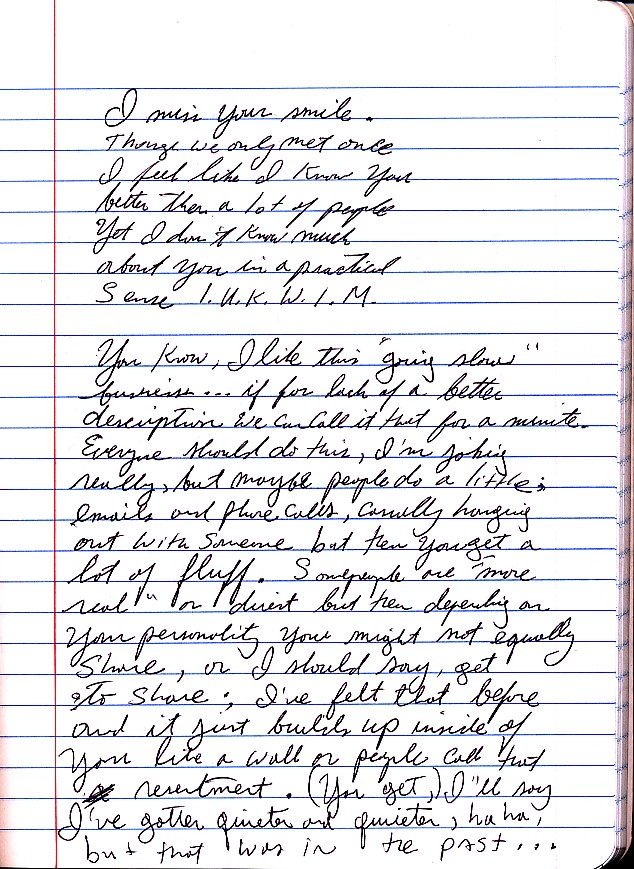 I miss your smile.
Though we only met once
I feel like I know you
better than a lot of people
Yet I don't know much
about you in a practical
Sense I.U.K.W.I.M.
You know, I like this "going slow"
business... if for lack of a better
description we can call it that for a minute.
Everyone should do this, I'm joking
really, but maybe people do a little;
emails and phone calls, casually hanging
out with someone but then you get a
lot of fluff. Some people are "more
real" or direct but then depending on
your personality you might not equally
share, or I should say, get
to share; I've felt that before
and it just builds up inside of
you like a wall or people call that
resentment. (You get,) I'll say
I've gotten quieter and quieter, haha,
but that was in the past...